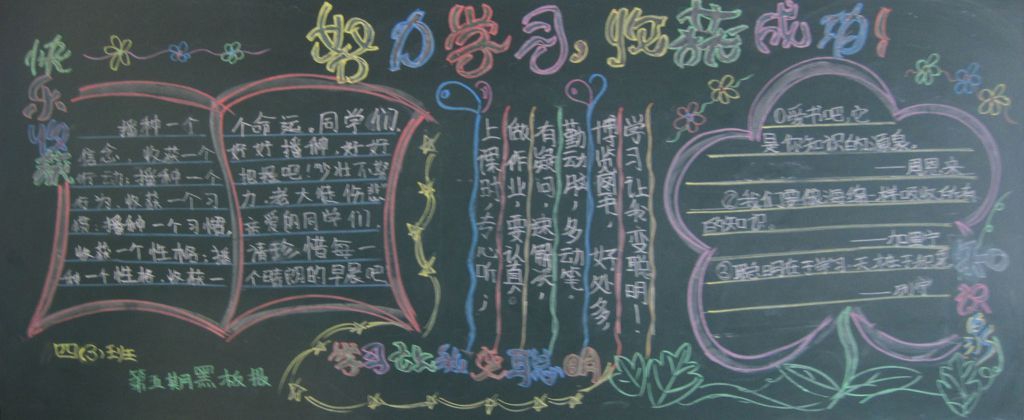 努力学习,收获成功!
快乐收获
播种一个
信念,收获一个
行动;播种一个
行为,收获一个习
惯;播种一个习惯,
收获一个性格;播
种一个性格,收获一
个命运。同学们,
好好播种,好好
把握吧!少壮不努
力,老大徒伤悲
亲爱的同学们
请珍惜每一
个晴朗的早晨吧
学习让我变聪明!
博览阅毛,好处多,
勤动脑,多动笔。
有疑问,速解决,
做作业,要认真。
上课时,专心听;
学习让我更聪明
①爱书吧,它
是你知识的源泉。
②我们要像海绵一样吸收有用
的知识。
——加里宁
③聪明在于学习,天才在于积累
——列宁
知识
四(3)班
第五期黑板报